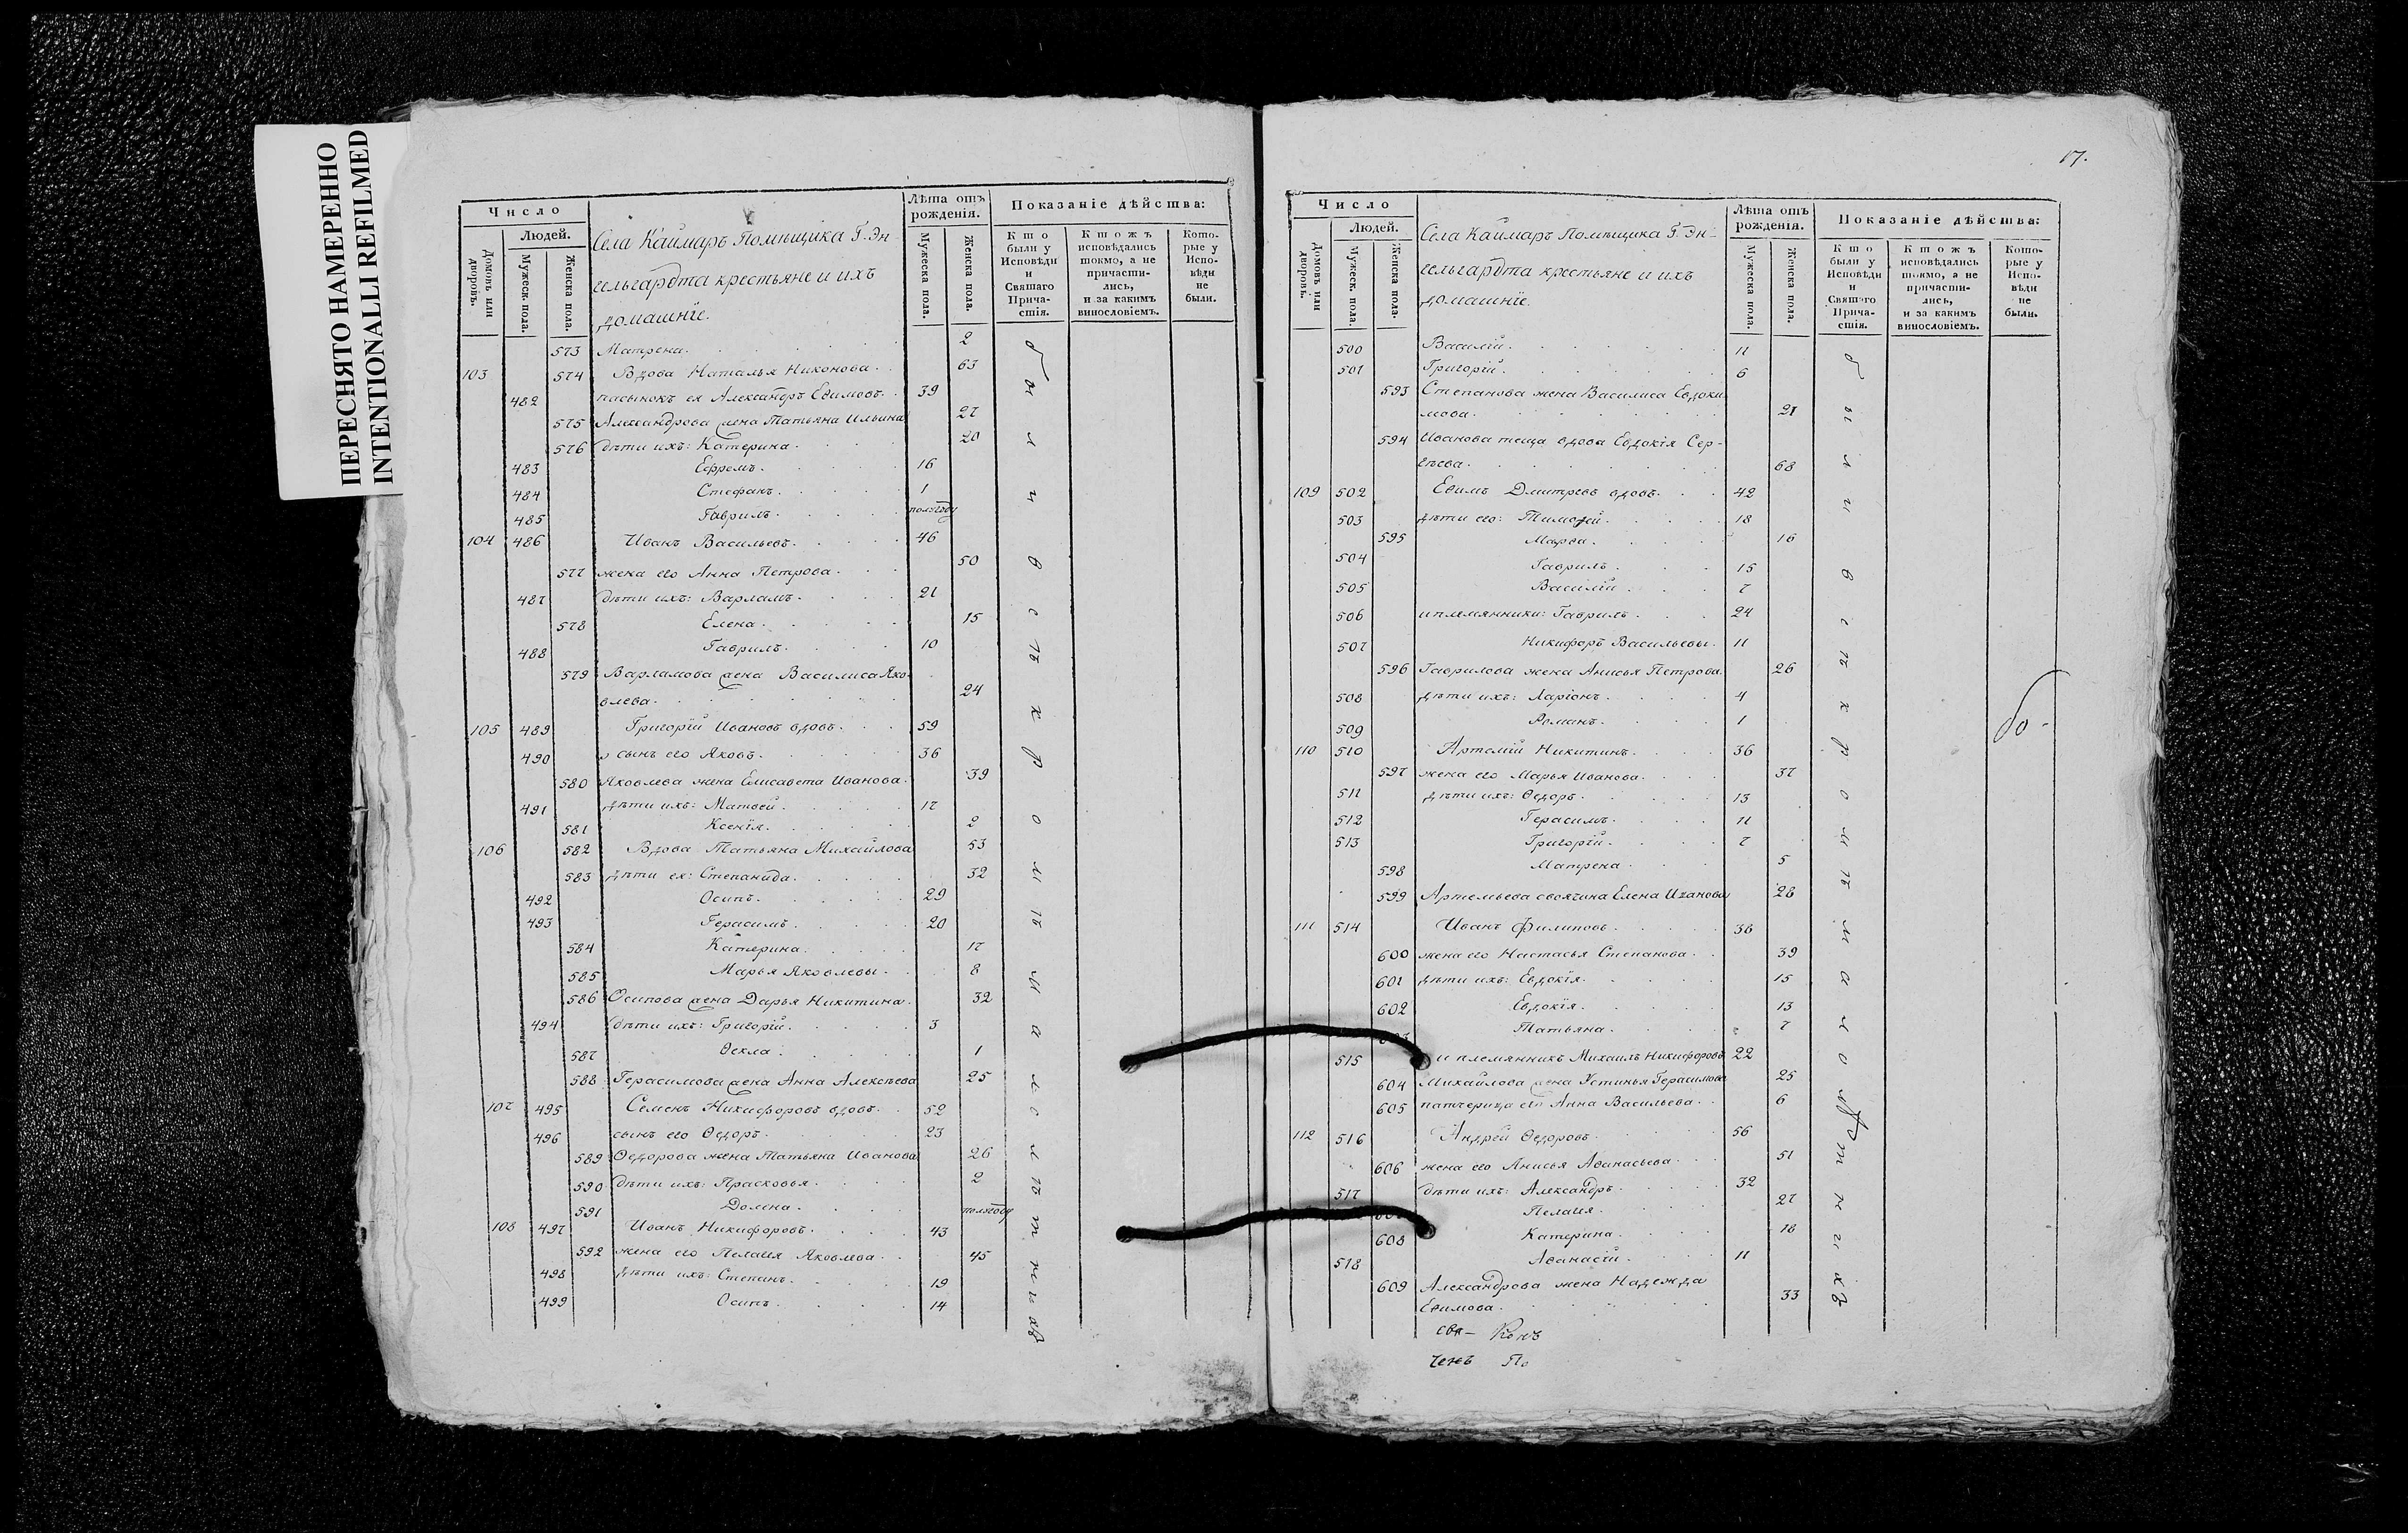 ПЕРЕСНЯТО НАМЕРЕННО
INTENTIONALLI REFILMED
Число
Людей.
Домовъ или дворовъ.
Мужеск. пола.
Женска пола.
Села Каймаръ Помѣщика Г. Эн
гельгардта крестьяне и ихъ
домашніе.
Лѣта отъ рожденія.
Мужеска пола.
Женска пола.
Показаніе дѣйства:
Кто были у Исповѣди и Святаго Причастія.
Ктожъ исповѣдались токмо, а не причастились, и за какимъ винословіемъ.
Которые у Исповѣди не были.
573 Матрена. 2
103 574 Вдова Наталья Никонова. 63
482 пасынокъ ея Александръ Еѳимовъ. 39
575 Александрова жена Татьяна Ильина 27
576 дѣти ихъ: Катерина. 20
483 Ефремъ. 16
484 Стефанъ. 1
485 Гаврилъ. полугоду
104 486 Иванъ Васильевъ. 46
577 жена его Анна Петрова. 50
487 дѣти ихъ: Варламъ. 21
578 Елена. 15
488 Гаврилъ. 10
579 Варламова жена Василиса Яко-
влева. 24
105 489 Григорій Ивановъ вдовъ. 59
490 и сынъ его Яковъ. 36
580 Яковлева жена Елисавета Иванова. 39
491 дѣти ихъ: Матвей. 17
581 Ксенія. 2
106 582 Вдова Татьяна Михайлова 53
583 дѣти ея: Степанида. 32
492 Осипъ. 29
493 Герасимъ. 20
584 Катерина. 17
585 Марья Яковлевы. 8
586 Осипова жена Дарья Никитина. 32
494 дѣти ихъ: Григорій. 3
587 Ѳекла. 1
588 Герасимова жена Анна Алексѣева 25
107 495 Семенъ Никифоровъ вдовъ. 52
496 сынъ его Ѳедоръ. 23
589 Ѳедорова жена Татьяна Иванова 26
590 дѣти ихъ: Прасковья. 2
591 Домна. полугоду
108 497 Иванъ Никифоровъ. 43
592 жена его Пелагея Яковлева. 45
498 дѣти ихъ: Степанъ. 19
499 Осипъ. 14
17.
Число
Людей.
Домовъ или дворовъ.
Мужеск. пола.
Женска пола.
Села Каймаръ Помѣщика Г. Эн-
гельгардта крестьяне и ихъ
домашніе.
Лѣта отъ рожденія.
Мужеска пола.
Женска пола.
Показаніе дѣйства:
Кто были у Исповѣди и Святаго Причастія.
Ктожъ исповѣдались токмо, а не причастились, и за какимъ винословіемъ.
Которые у Исповѣди не были.
500 Василій. 11
501 Григорій. 6
593 Степанова жена Василиса Евдоки
мова. 21
594 Иванова теща вдова Евдокія Сер-
гѣева. 68
109 502 Еѳимъ Дмитревъ вдовъ. 42
503 дѣти его: Тимоѳей. 18
595 Марѳа. 16
504 Гаврилъ. 15
505 Василій. 7
506 и племянники: Гаврилъ. 24
507 Никифоръ Васильевы. 11
596 Гаврилова жена Анисья Петрова. 26
508 дѣти ихъ: Ларіонъ. 4
509 Романъ. 1
110 510 Артемій Никитинъ. 36
597 жена его Марья Иванова. 37
511 дѣти ихъ: Ѳедоръ. 13
512 Герасимъ. 11
513 Григорій. 7
598 Матрена. 5
599 Артемьева своячина Елена Иванова 28
111 514 Иванъ Филиповъ. 38
600 жена его Настасья Степанова. 39
601 дѣти ихъ: Евдокія. 15
602 Евдокія. 13
Татьяна. 7
515 и племянникъ Михаилъ Никифоровъ 22
604 Михайлова жена Устинья Герасимова 25
605 патчерица его Анна Васильева. 6
112 516 Андрей Ѳедоровъ. 56
606 жена его Анисья Аѳанасьева. 51
517 дѣти ихъ: Александръ. 32
Пелагея. 27
608 Катерина. 18
518 Аѳанасій. 11
609 Александрова жена Надежда
Еѳимова. 33